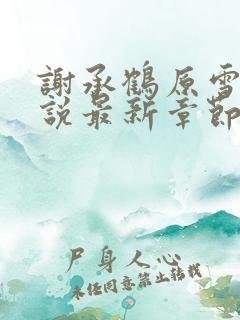 謝承鶴原雪
說最新章節
尸身人心
未经同意禁止转载